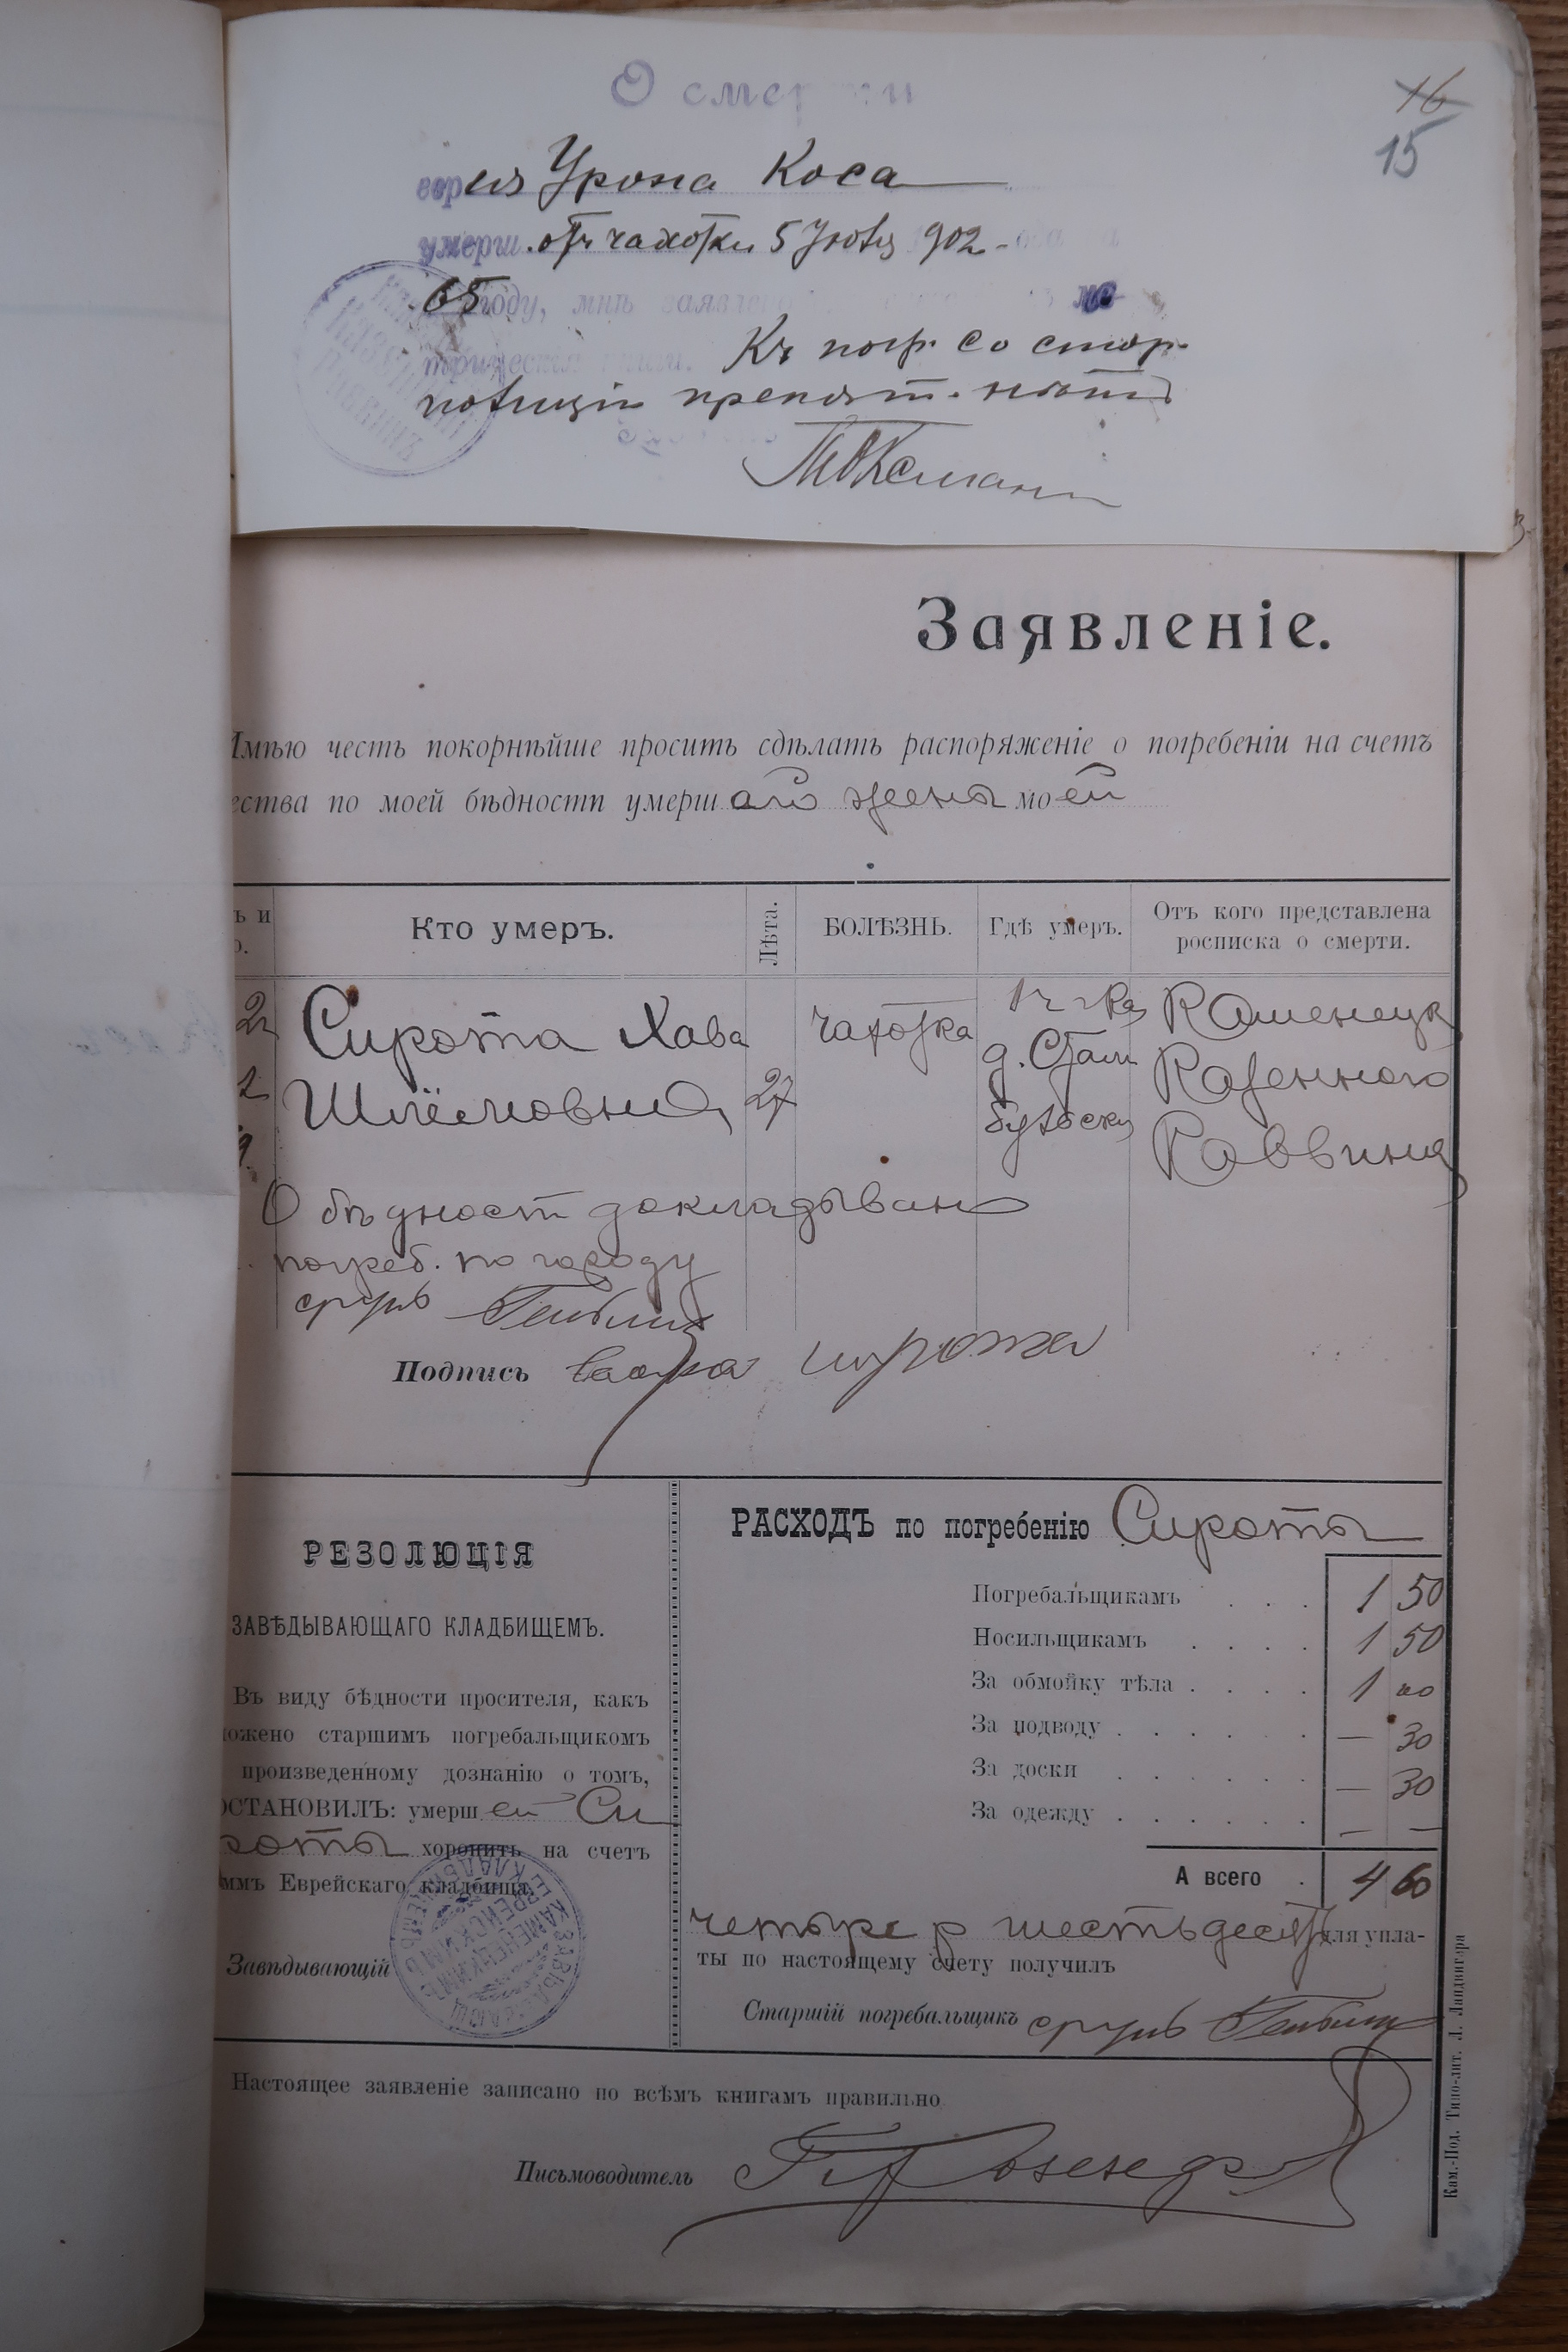 О смерти
16
15
евр Урона Коса
умерш. отъ чахотки 5 Іюля 902
65 году, мнѣ заявлено
Къ погр. со стор.
полиціи препят. нѣтъ
Заявленіе.
Имѣю честь покорнѣйше просить сдѣлать распоряженіе о погребеніи на счетъ
ества по моей бѣдности умерш жены моей
ъ и
о.
Кто умеръ.
Лѣта.
БОЛѢЗНЬ.
Гдѣ умеръ.
Отъ кого представлена
росписка о смерти.
Сирота Хава
Шлёмовна
27
чахотка
д.
Каменецк
Казенного
Раввина
О бѣдност докладываю
погреб. по городу
сруль
Подпись сирота
РЕЗОЛЮЦІЯ
ЗАВѢДЫВАЮЩАГО КЛАДБИЩЕМЪ.
Въ виду бѣдности просителя, какъ
ложено старшимъ погребальщикомъ
произведенному дознанію о томъ,
ОСТАНОВИЛЪ: умерш ей Си
роты хоронить на счетъ
ммъ Еврейскаго кладбища.
Завѣдывающій
РАСХОДЪ по погребенію Сироты
Погребальщикамъ . . . 1 50
Носильщикамъ . . . . 1 50
За обмойку тѣла . . . . 1 00
За подводу . . . . . . — 30
За доски . . . . . . — 30
За одежду . . . . . . — —
А всего . 4 60
четыре р шестьдесят для упла-
ты по настоящему счету получилъ
Старшій погребальщикъ сруль
Настоящее заявленіе записано по всѣмъ книгамъ правильно
Письмоводитель
Кам.-Под. Типо-лит. Л. Ландвигера